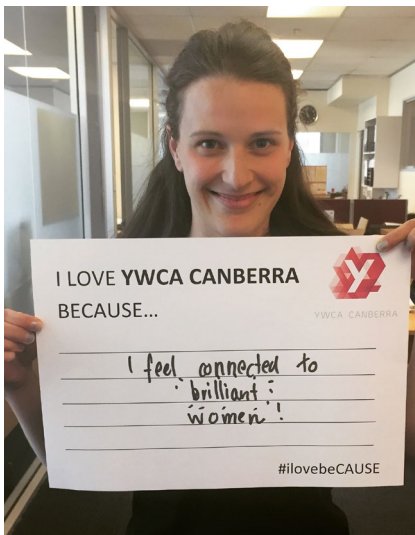 I LOVE YWCA CANBERRA
BECAUSE...
Y
YWCA CANBERRA
I feel connected to
brilliant
women!
#ilovebeCAUSE